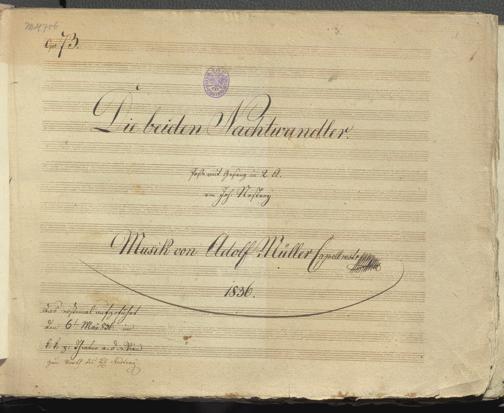 MH 7706
Op. 73.
Die beiden Nachtwandler.
Posse mit Gesang in 2 A.
von Joh. Nestroy
Musik von Adolf Müller Capellmstr
1836.
das erstemal aufgeführt
den 6t Mai 836 im
k. k. p. Theater a. d. Wien
zum